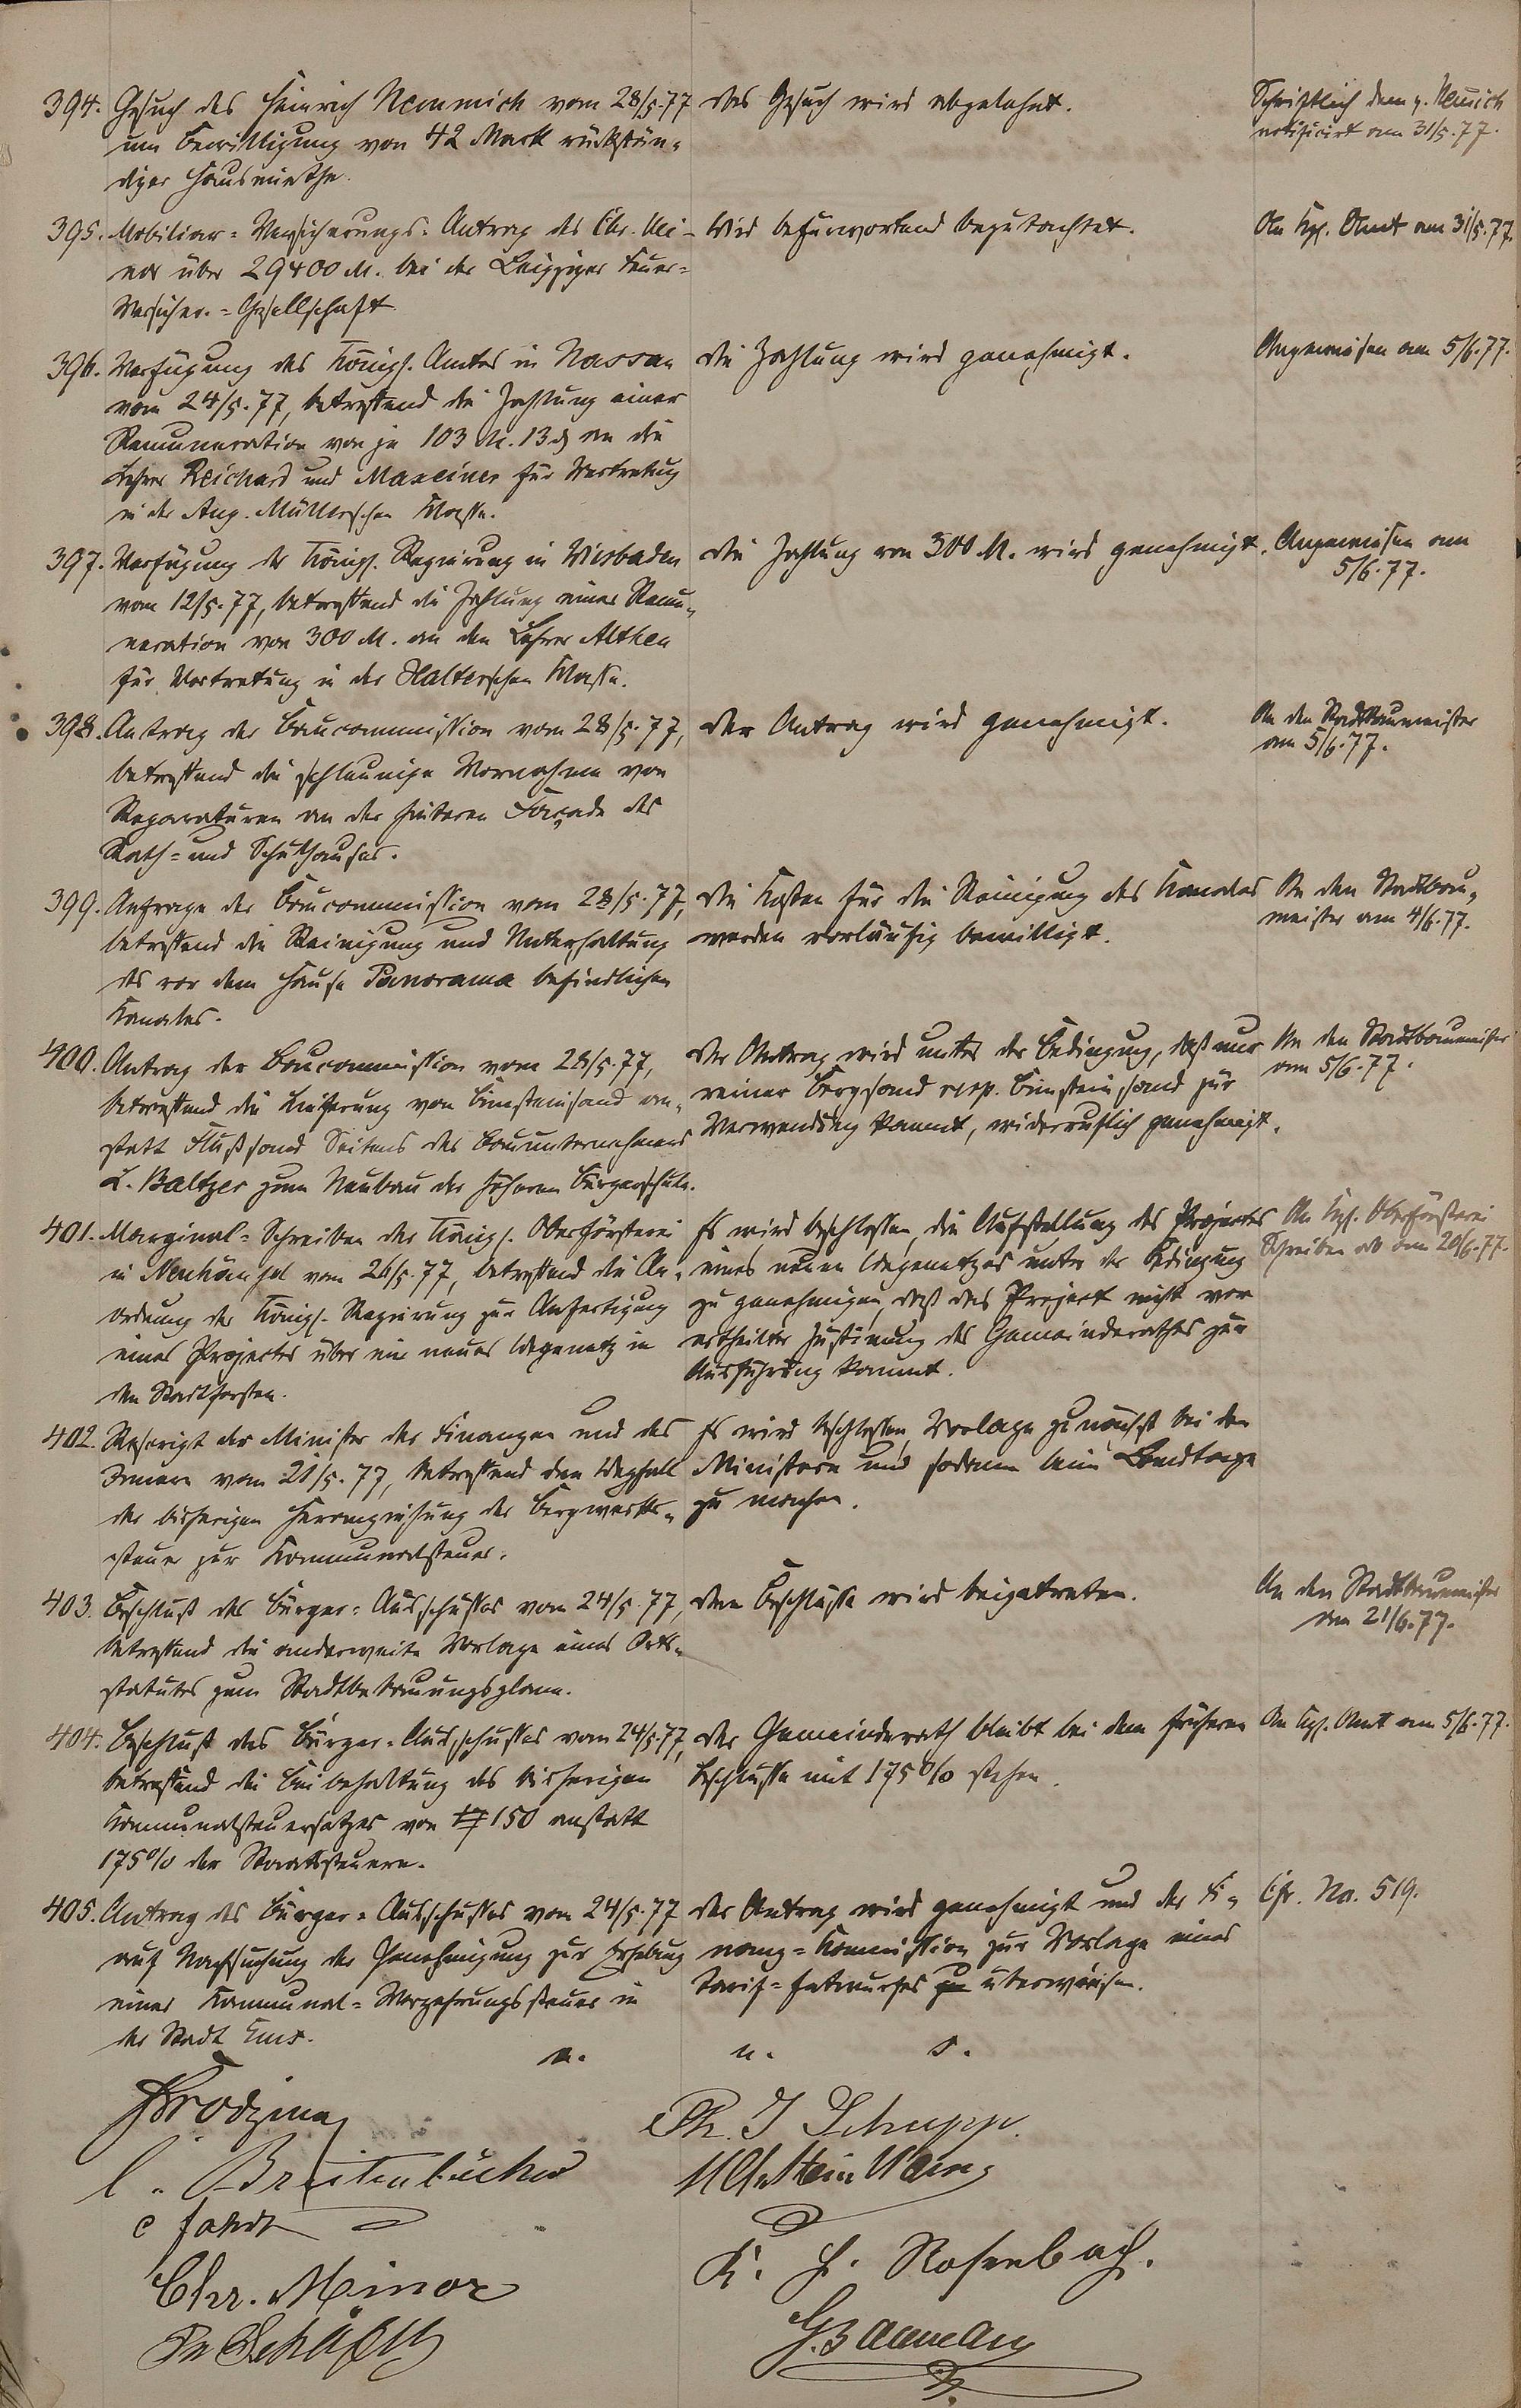 394. Gesuch des Heinrich Nemmich vom 28/5.77
um Bewilligung von 42 Mark rückstän-
diger Hausmiethe.
Das Gesuch wird abgelehnt.
Schriftlich dem p.
notificirt am 31/5.77.
395. Mobiliar-Versicherungs-Antrag des Chr. Mei-
nor über 29400 M. bei der Leipziger Feuer-
Versicher.-Gesellschaft
Wird befürwortend begutachtet.
An Kgl. Amt am 31/5.77.
396. Verfügung des Königl. Amtes in Nassau
vom 24/5.77, betreffend die Zahlung einer
Remuneration von je 103 M. 13 ₰ an die
Lehrer Reichard und Maxeiner für Vertretung
in der Aug. Müllerschen Klasse.
Die Zahlung wird genehmigt.
Angewiesen am 5/6.77.
397. Verfügung der Königl. Regierung in Wiesbaden
vom 12/5.77, betreffend die Zahlung einer Remu-
neration von 300 M. an den Lehrer Althen
für Vertretung in der Halterschen Klasse.
Die Zahlung von 300 M. wird genehmigt.
Angewiesen am
5/6.77.
398. Antrag der Baucommission vom 28/5.77,
betreffend die schleunige Vornahme von
Reparaturen an der hinteren Façade des
Rath- und Schulhauses.
Der Antrag wird genehmigt.
An den Stadtbaumeister
am 5/6.77.
399. Anfrage der Baucommission vom 28/5.77,
betreffend die Reinigung und Unterhaltung
des vor dem Hause Panorama befindlichen
Kanales.
Die Kosten für die Reinigung des Kanales
werden vorläufig bewilligt.
An den Stadtbau-
meister am 4/6.77.
400. Antrag der Baucommission vom 28/5.77,
betreffend die Lieferung von Bimsteinsand an-
statt Flußsand Seitens des Bauunternehmers
L. Baltzer zum Neubau der höheren Bürgerschule.
Der Antrag wird unter der Bedingung, daß nur
reiner Bergsand resp. Bimsteinsand zur
Verwendung kommt, widerruflich genehmigt.
An den Stadtbaumeister
am 5/6.77.
401. Marginal-Schreiben der Königl. Oberförsterei
in Neuhäusel vom 26/5.77, betreffend die An-
ordnung der Königl. Regierung zur Anfertigung
eines Projectes über ein neues Wegenetz in
den Stadtforsten.
Es wird beschlossen, die Aufstellung des Projectes
eines neuen Wegenetzes unter der Bedingung
zu genehmigen, daß das Project nicht vor
ertheilter Zustimung des Gemeinderathes zur
Ausführung kommt.
An Kgl. Oberförsterei
Schreiben ab am 20/6.77.
402. Rescript der Minister der Finanzen und des
Innern vom 21/5.77, betreffend den Wegfall
der bisherigen Heranziehung der Bergwerks-
steuer zur Kommunalsteuer.
Es wird beschlossen, Vorlage zunächst bei den
Ministern und sodann beim Landtage
zu machen.
403. Beschluß des Bürger-Ausschusses vom 24/5.77,
betreffend die anderweite Vorlage eines Orts-
statutes zum Stadtbebauungsplane.
Dem Beschlusse wird beigetreten.
An den Stadtbaumeister
am 21/6.77.
404. Beschluß des Bürger-Ausschusses vom 24/5.77,
betreffend die Beibehaltung des bisherigen
Kommunalsteuersatzes von 150 anstatt
175% der Staatssteuern.
Der Gemeinderath bleibt bei dem früheren
Beschlusse mit 175% stehen.
An Kgl. Amt am 5/6.77.
405. Antrag des Bürger-Ausschusses vom 24/5.77
auf Nachsuchung der Genehmigung zur Erhebung
einer Kommunal-Verzehrungssteuer in
der Stadt Ems.
Der Antrag wird genehmigt und der Fi-
nanz-Kommission zur Vorlage eines
Tarif-Entwurfes zu überwiesen.
Cfr. No. 519.
a. u. s.
C. Breitenbücher
Ph. J Schupp.
K. H. Rosenbach.
Chr. Meinor